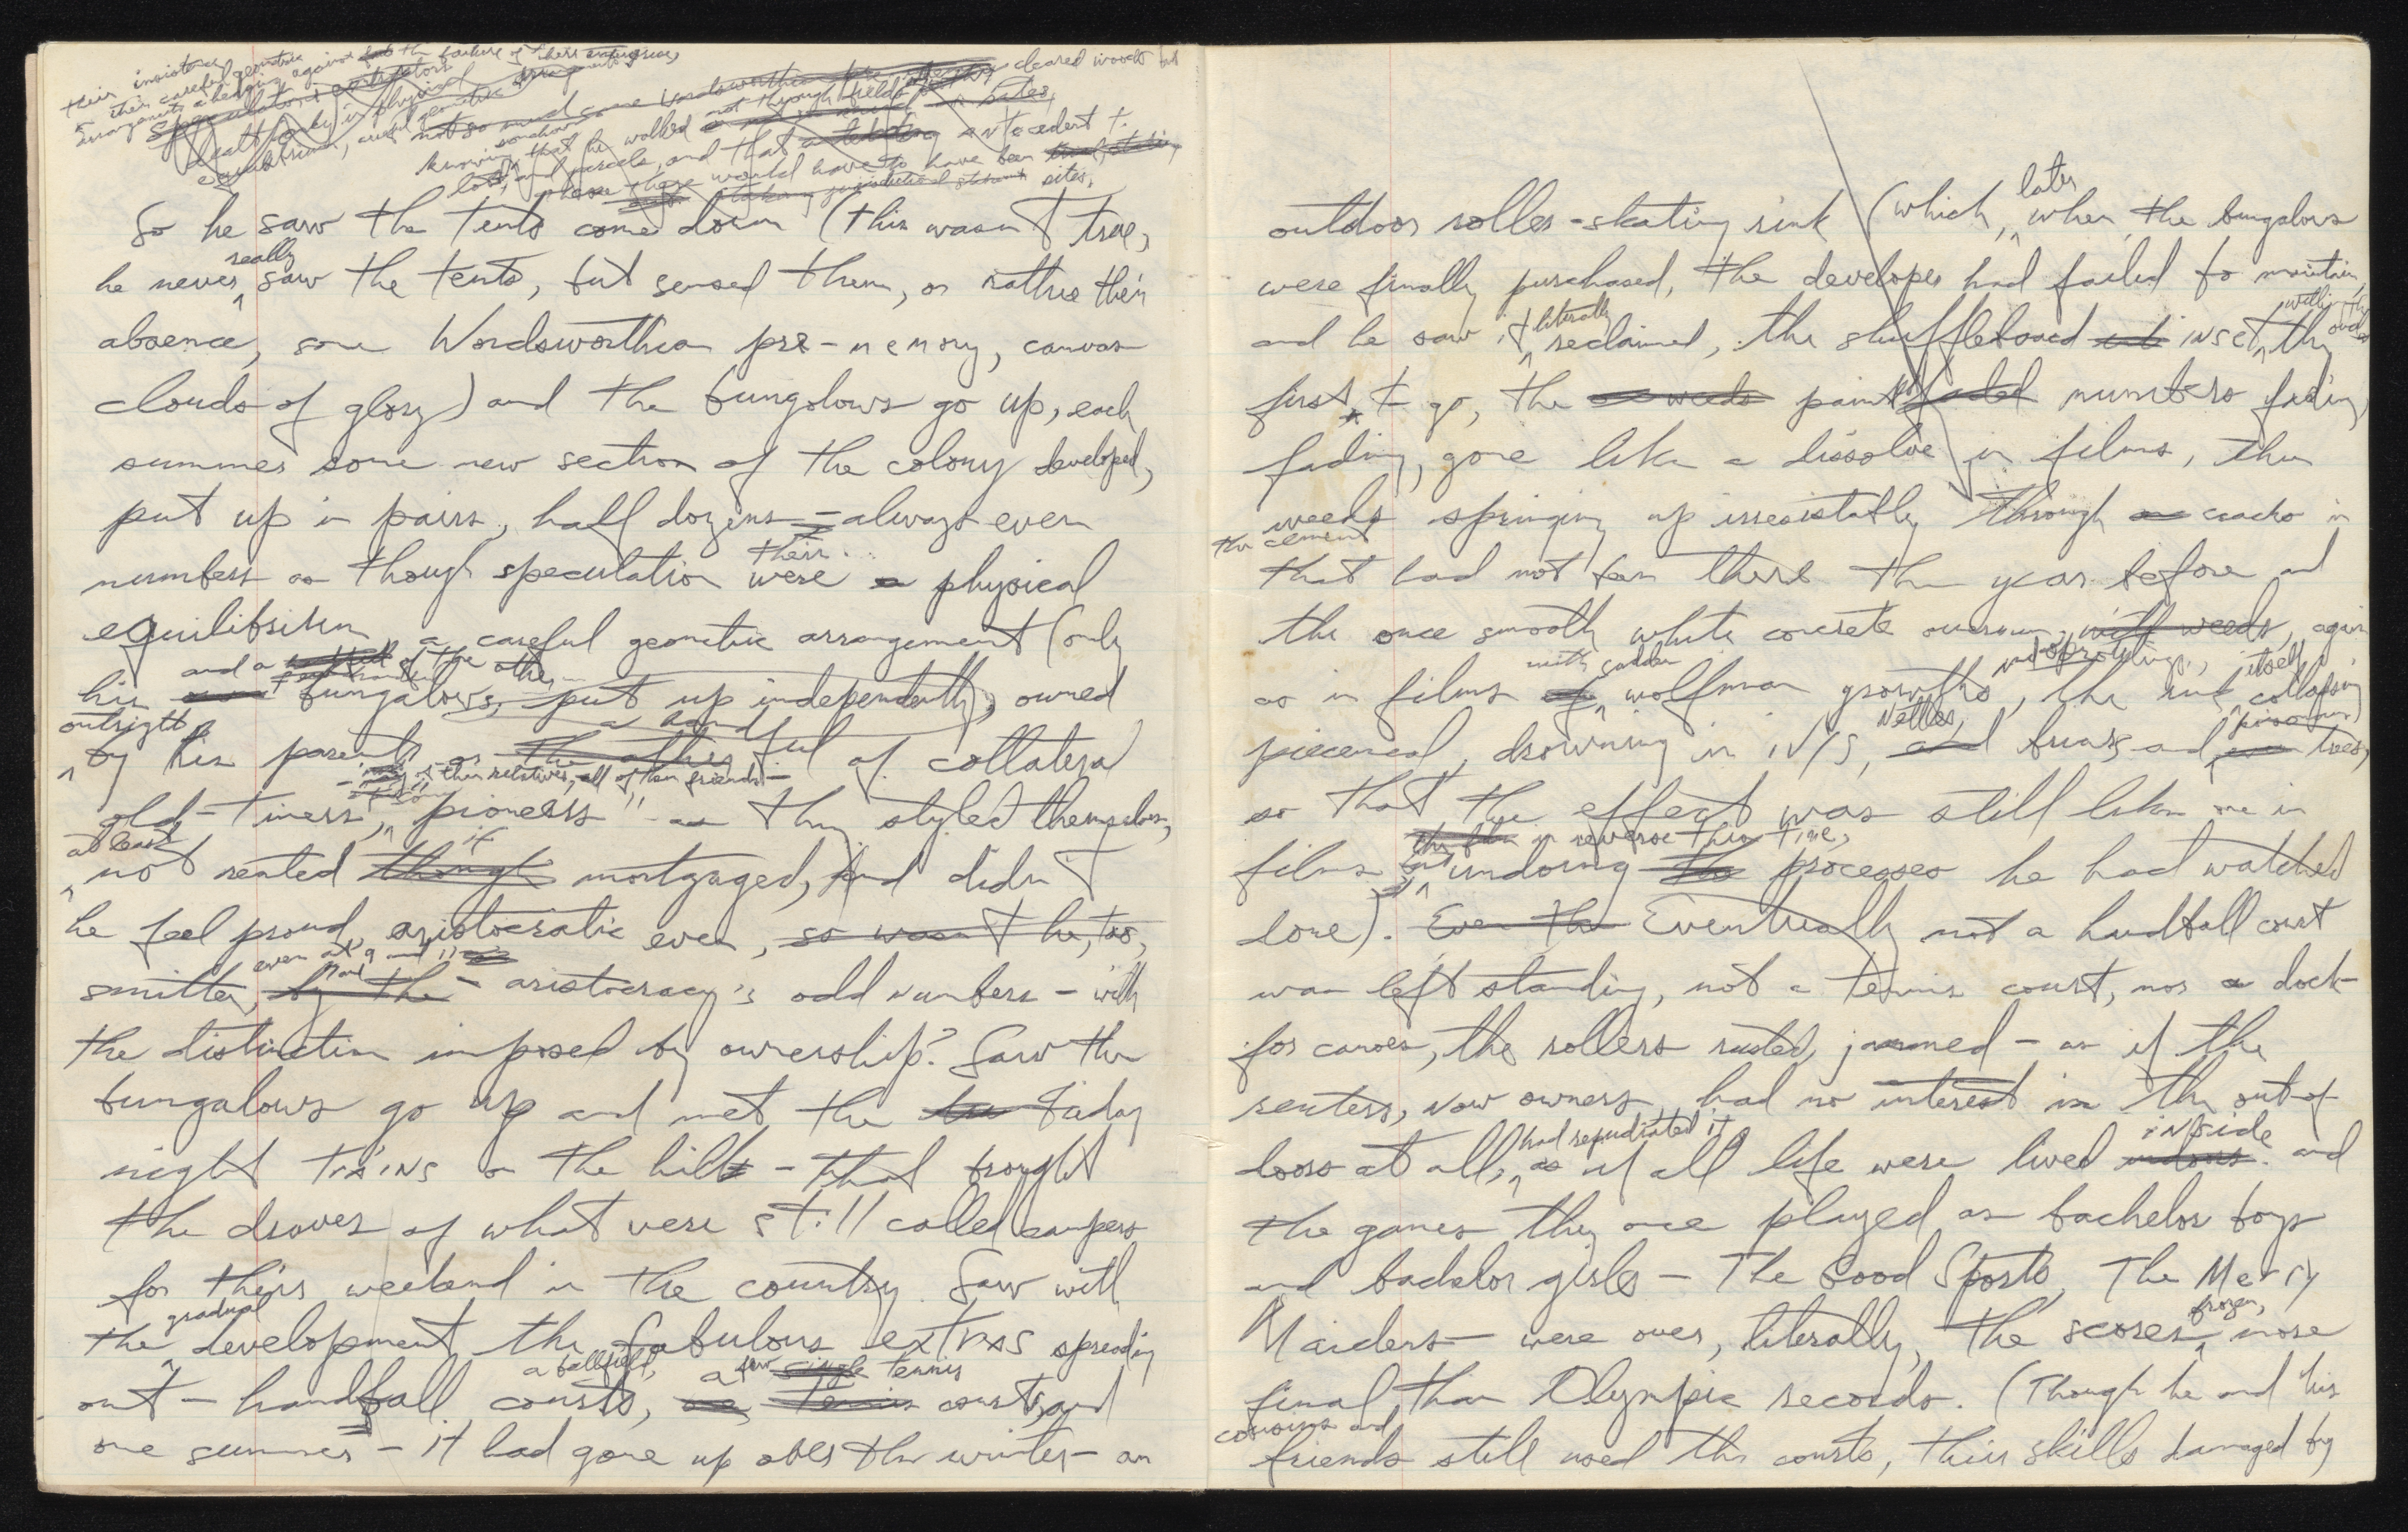 their insistence
on their careful geometric
arrangements a hedging against the failure of their enterprise,
speculations
equilibrium, careful geometric arrangements
not so much some Wordsworthian pre-memory
somehow not through fields but cleared woods but
knowing that he walked
lots, and parcels, and that antecedent t
place there would have to have been
jurisdictional sites,
So he saw the tents come down (this wasn't true,
really
he never saw the tents, but sensed them, or rather their
absence, some Wordsworthian pre-memory, canvas
clouds of glory) and the bungalows go up, each
summer some new section of the colony developed,
put up in pairs, half dozens – always even
their
numbers as though speculation were a physical
equilibrium, a careful geometric arrangement (only
and a of the other
his bungalows, put up independently, owned
outright a hand
by his parents or the other ful of collateral
of their relatives, all of their friends –
old-timers, "pioneers" as they styled themselves,
at least if
not rented though mortgaged, And didn't
he feel proud, aristocratic even, so wasn't he, too,
even at 9 and 11
smitten by the – aristocracy's odd numbers – with
the distinction imposed by ownership? Saw the
bungalows go up and met the Friday
night trains on the hill – that brought
the droves of what were still called campers
for their weekend in the country. Saw with
gradual
the development the fabulous extras spreading
a ballfield, a few single tennis
out – handball courts, tennis courts, and
one summer – it had gone up over the winter – an
later
outdoor roller-skating rink (which, when the bungalows
were finally purchased, the developer had failed to maintain,
literally
and he saw it reclaimed, the shuffleboard inset, the
first to go, the weeds paint faded numbers fading,
fading, gone like a dissolve in films, the
weeds springing up irresistibly through cracks in
the cement
that had not been there the year before and
the once smooth white concrete overrun, with weeds, again
with sudden itself
as in films of wolfman growths, the rink collapsing
nettles,
piecemeal, drowning in ivys, and briars and trees,
so that the effect was still like one in
in reverse this time,
films but undoing the processes he had watched
done). Even the Eventually not a handball court
was left standing, not a tennis court, nor a dock
for canoes, the rollers rusted, jammed – as if the
renters, now owners, had no interest in the out-of-
had repudiated it inside
doors at all, as if all life were lived indoors. and
the games they once played as bachelor boys
and bachelor girls – The Good Sports, The Merry
frozen,
Maidens – were over, literally, the scores more
final than Olympic records. (Though he and his
cousins and
friends still used the courts, their skills damaged by